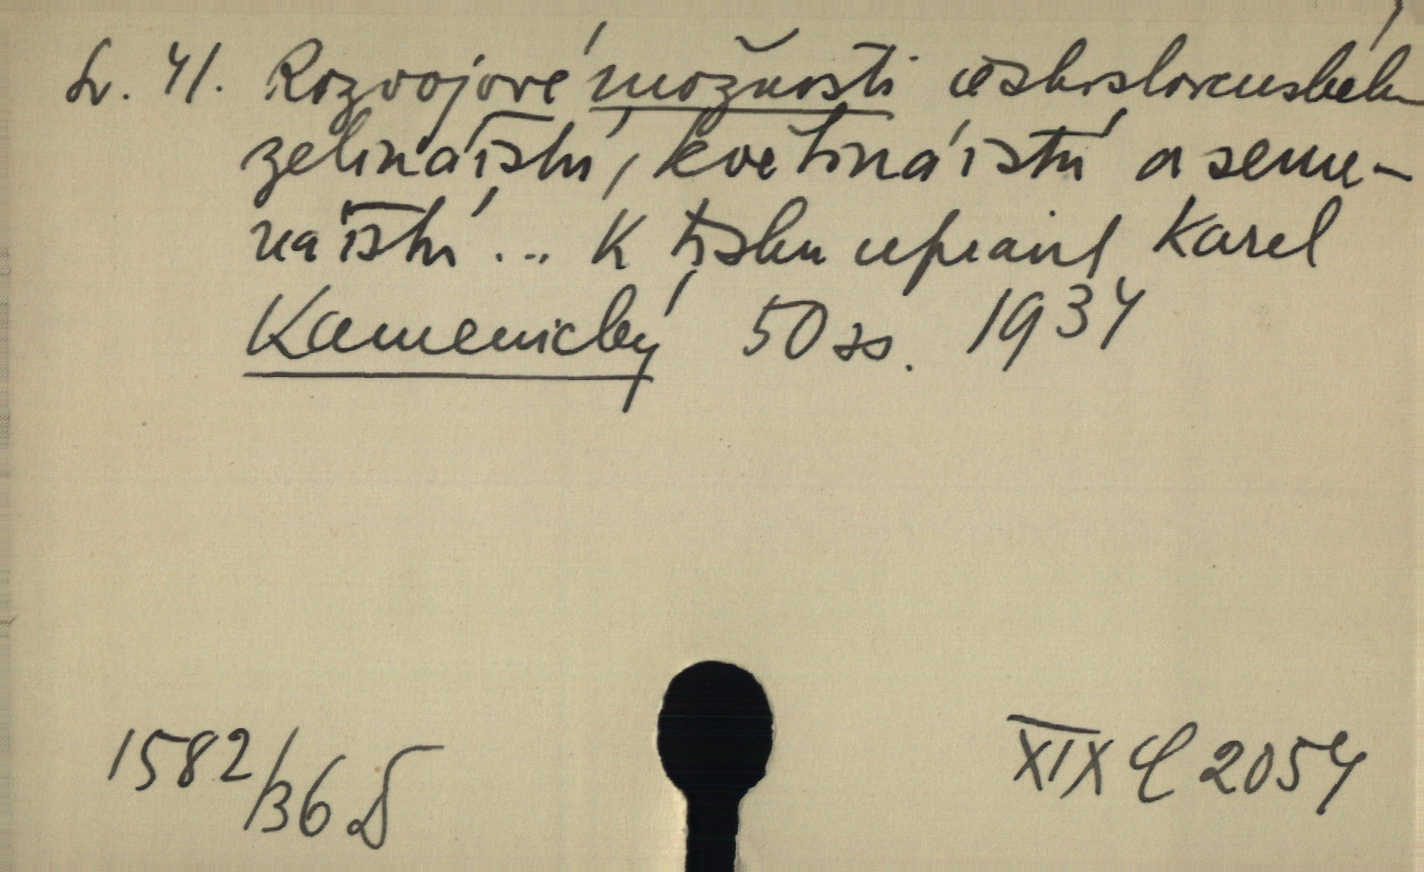 Sv. 41. Rozvojové možnosti československého
zelinářství, květinářství a seme-
nářství ... K tisku upravil Karel
Kamenický 50 ss. 1934
1582/36 D
XIX E 2054